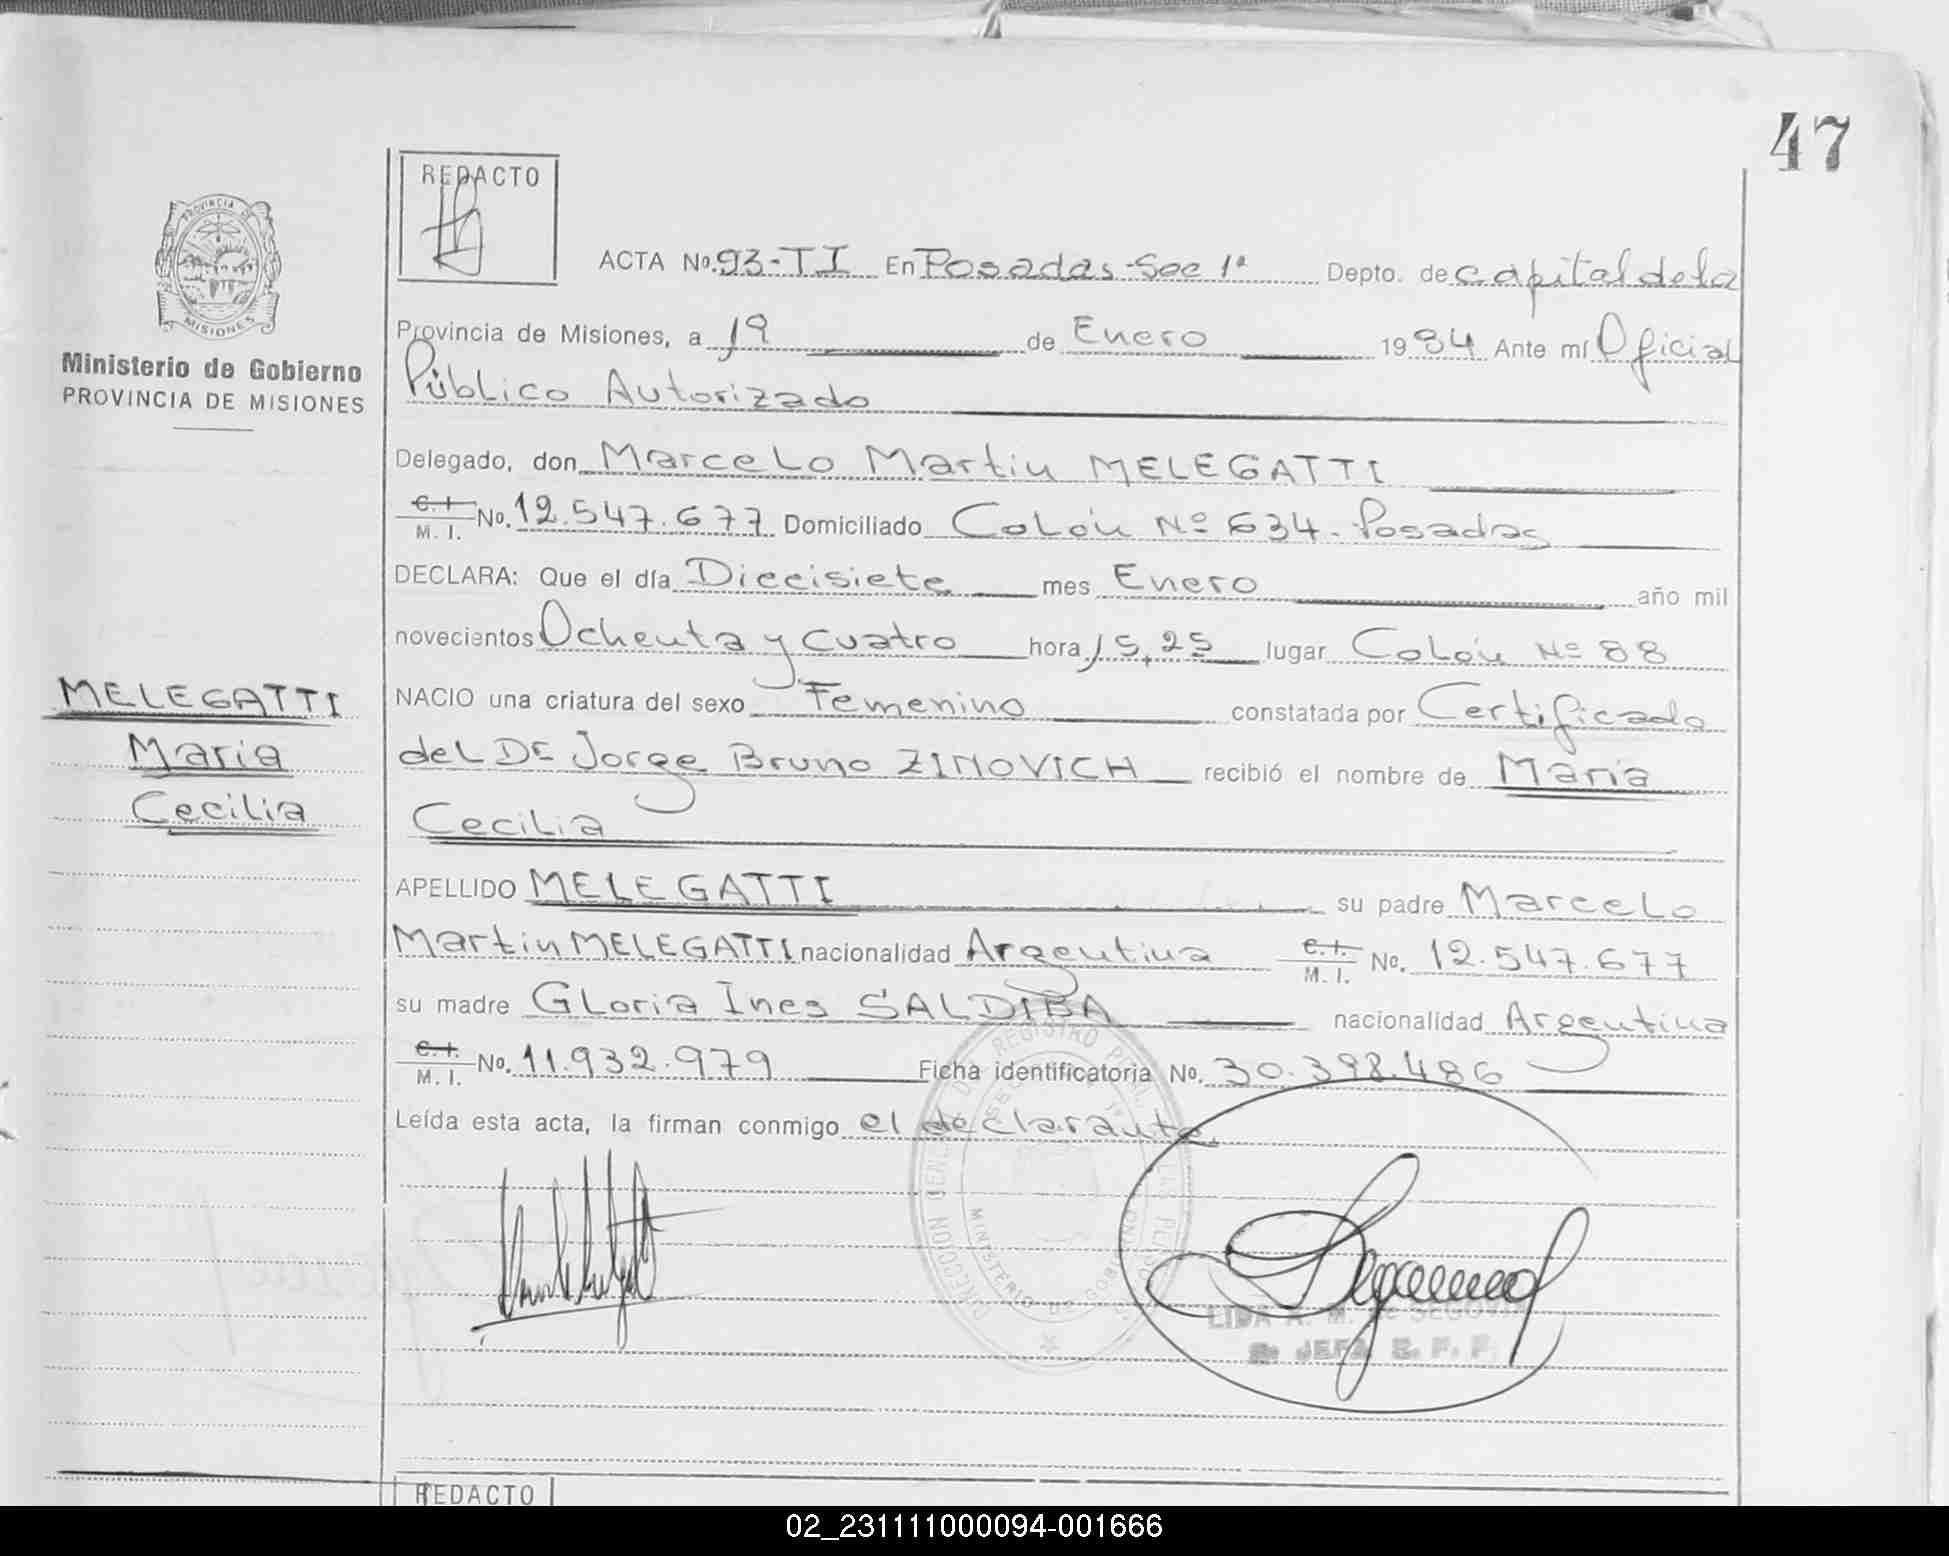 47
REDACTO
PROVINCIA DE
MISIONES
Ministerio de Gobierno
PROVINCIA DE MISIONES
ACTA No. 93-TI En Posadas-Sec 1ª Depto. de Capital de la
Provincia de Misiones, a 19 de Enero 1984 Ante mí Oficial
Público Autorizado
Delegado, don Marcelo Martin MELEGATTI
C.I. M.I. No. 12.547.677 Domiciliado Colón Nº 634. Posadas
DECLARA: Que el día Diecisiete mes Enero año mil
novecientos Ochenta y Cuatro hora 15,25 lugar Colón Nº 88
NACIO una criatura del sexo Femenino constatada por Certificado
del Dr Jorge Bruno ZINOVICH recibió el nombre de María
Cecilia
APELLIDO MELEGATTI su padre Marcelo
Martin MELEGATTI nacionalidad Argentina C.I. M.I. No. 12.547.677
su madre Gloria Ines SALDIBA nacionalidad Argentina
C.I. M.I. No. 11.932.979 Ficha identificatoria No. 30.398.486
Leída esta acta, la firman conmigo el declarante.
MELEGATTI
Maria
Cecilia
MINISTERIO DE GOBIERNO
LIDA A. M. de SEGOVIA
REDACTO
02_231111000094-001666